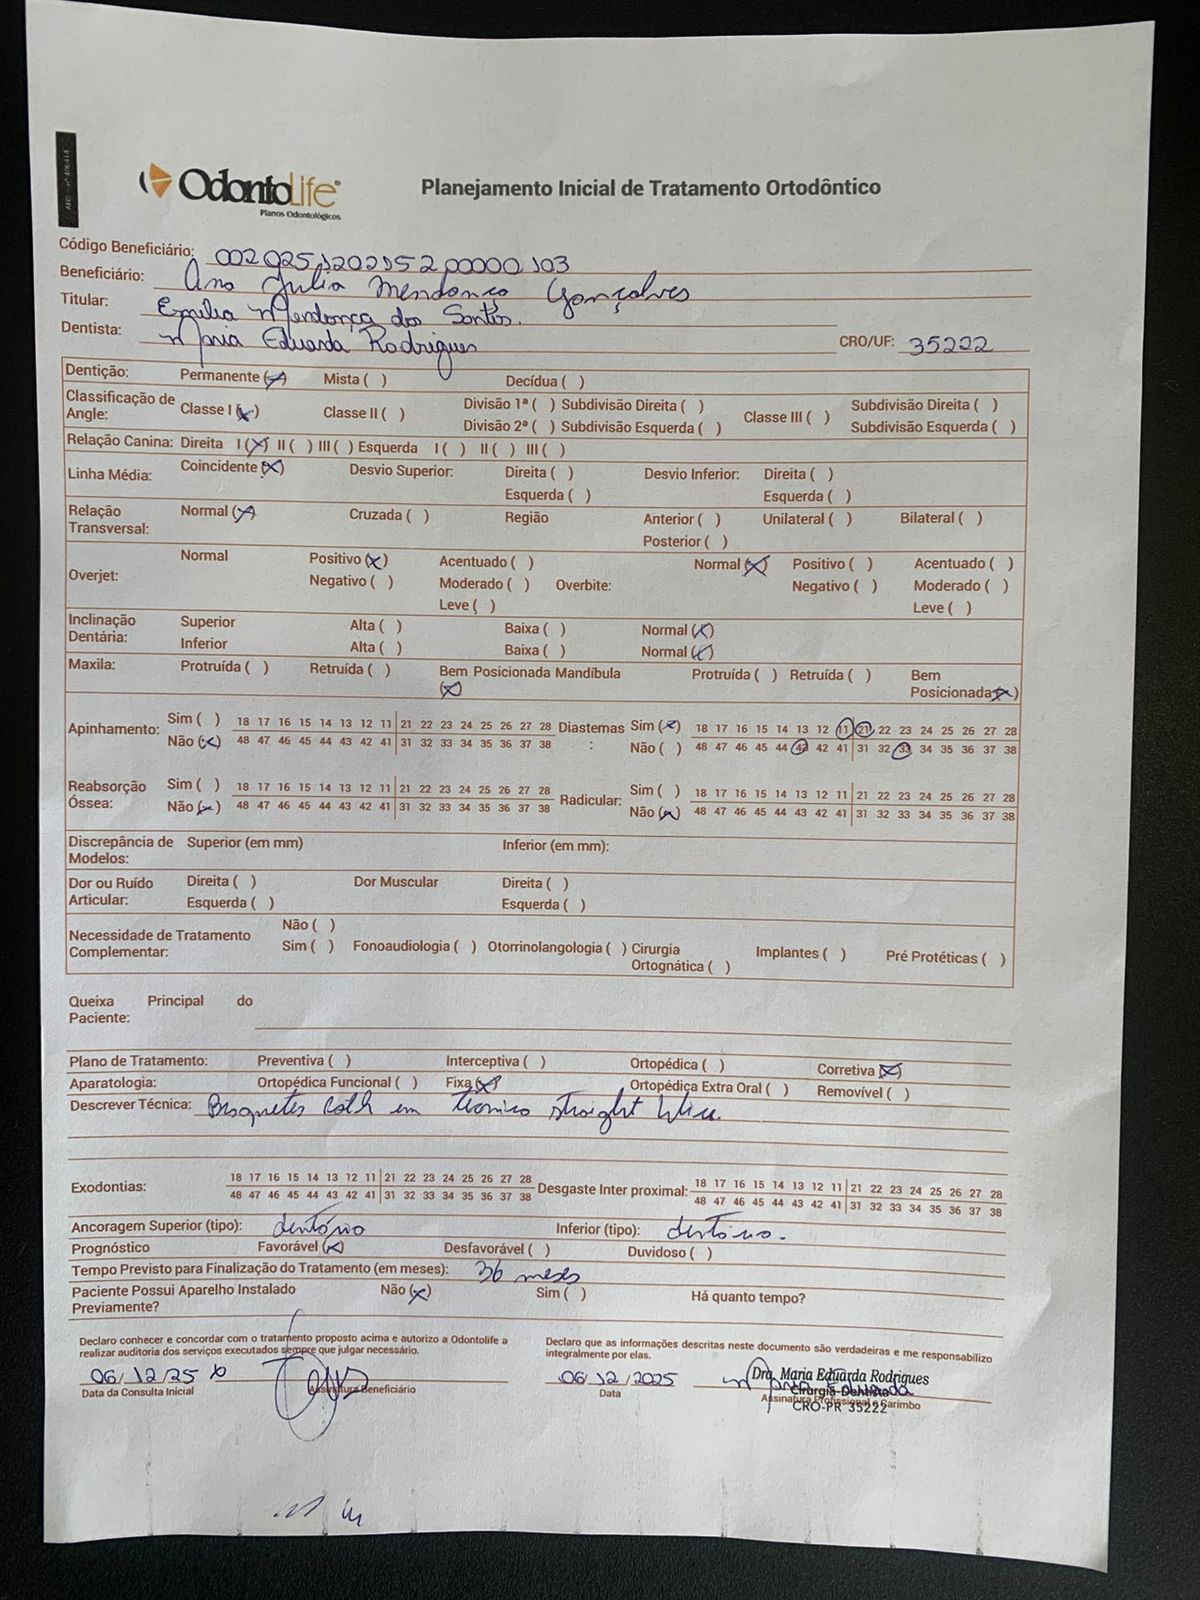 OdontoLife®
Planos Odontológicos
Planejamento Inicial de Tratamento Ortodôntico
Código Beneficiário:
Beneficiário: Ana Julia Mendonça Gonçalves
Titular: Emilia Mendonça dos Santos.
Dentista: Maria Eduarda Rodrigues CRO/UF: 35222
Dentição: Permanente (x) Mista ( ) Decídua ( )
Classificação de Angle: Classe I (x) Classe II ( ) Divisão 1ª ( ) Subdivisão Direita ( ) Divisão 2ª ( ) Subdivisão Esquerda ( ) Classe III ( ) Subdivisão Direita ( ) Subdivisão Esquerda ( )
Relação Canina: Direita I (x) II ( ) III ( ) Esquerda I ( ) II ( ) III ( )
Linha Média: Coincidente (x) Desvio Superior: Direita ( ) Esquerda ( ) Desvio Inferior: Direita ( ) Esquerda ( )
Relação Transversal: Normal (x) Cruzada ( ) Região Anterior ( ) Posterior ( ) Unilateral ( ) Bilateral ( )
Overjet: Normal Positivo (x) Negativo ( ) Acentuado ( ) Moderado ( ) Leve ( ) Overbite: Normal (x) Positivo ( ) Negativo ( ) Acentuado ( ) Moderado ( ) Leve ( )
Inclinação Dentária: Superior Alta ( ) Baixa ( ) Normal (x)
Inferior Alta ( ) Baixa ( ) Normal (x)
Maxila: Protruída ( ) Retruída ( ) Bem Posicionada (x) Mandíbula Protruída ( ) Retruída ( ) Bem Posicionada (x)
Apinhamento: Sim ( ) 18 17 16 15 14 13 12 11 21 22 23 24 25 26 27 28 Diastemas : Sim (x) 18 17 16 15 14 13 12 11 21 22 23 24 25 26 27 28
Não (x) 48 47 46 45 44 43 42 41 31 32 33 34 35 36 37 38 Não ( ) 48 47 46 45 44 43 42 41 31 32 33 34 35 36 37 38
Reabsorção Óssea: Sim ( ) 18 17 16 15 14 13 12 11 21 22 23 24 25 26 27 28 Radicular: Sim ( ) 18 17 16 15 14 13 12 11 21 22 23 24 25 26 27 28
Não (x) 48 47 46 45 44 43 42 41 31 32 33 34 35 36 37 38 Não (x) 48 47 46 45 44 43 42 41 31 32 33 34 35 36 37 38
Discrepância de Modelos: Superior (em mm) Inferior (em mm):
Dor ou Ruído Articular: Direita ( ) Esquerda ( ) Dor Muscular Direita ( ) Esquerda ( )
Necessidade de Tratamento Complementar: Não ( ) Sim ( ) Fonoaudiologia ( ) Otorrinolangologia ( ) Cirurgia Ortognática ( ) Implantes ( ) Pré Protéticas ( )
Queíxa Principal do Paciente:
Plano de Tratamento: Preventiva ( ) Interceptiva ( ) Ortopédica ( ) Corretiva (x)
Aparatologia: Ortopédica Funcional ( ) Fixa (x) Ortopédica Extra Oral ( ) Removível ( )
Descrever Técnica: Braquetes Roth em técnica straight Wire.
Exodontias: 18 17 16 15 14 13 12 11 21 22 23 24 25 26 27 28 Desgaste Inter proximal: 18 17 16 15 14 13 12 11 21 22 23 24 25 26 27 28
48 47 46 45 44 43 42 41 31 32 33 34 35 36 37 38 48 47 46 45 44 43 42 41 31 32 33 34 35 36 37 38
Ancoragem Superior (tipo): dentário Inferior (tipo): dentário.
Prognóstico Favorável (x) Desfavorável ( ) Duvidoso ( )
Tempo Previsto para Finalização do Tratamento (em meses): 36 meses
Paciente Possui Aparelho Instalado Previamente? Não (x) Sim ( ) Há quanto tempo?
Declaro conhecer e concordar com o tratamento proposto acima e autorizo a Odontolife a
realizar auditoria dos serviços executados sempre que julgar necessário.
Declaro que as informações descritas neste documento são verdadeiras e me responsabilizo
integralmente por elas.
06/12/25 x
Data da Consulta Inicial
Assinatura Beneficiário
06/12/2025
Data
Dra. Maria Eduarda Rodrigues
Cirurgiã-Dentista
Assinatura Profissional e Carimbo
CRO-PR 35222